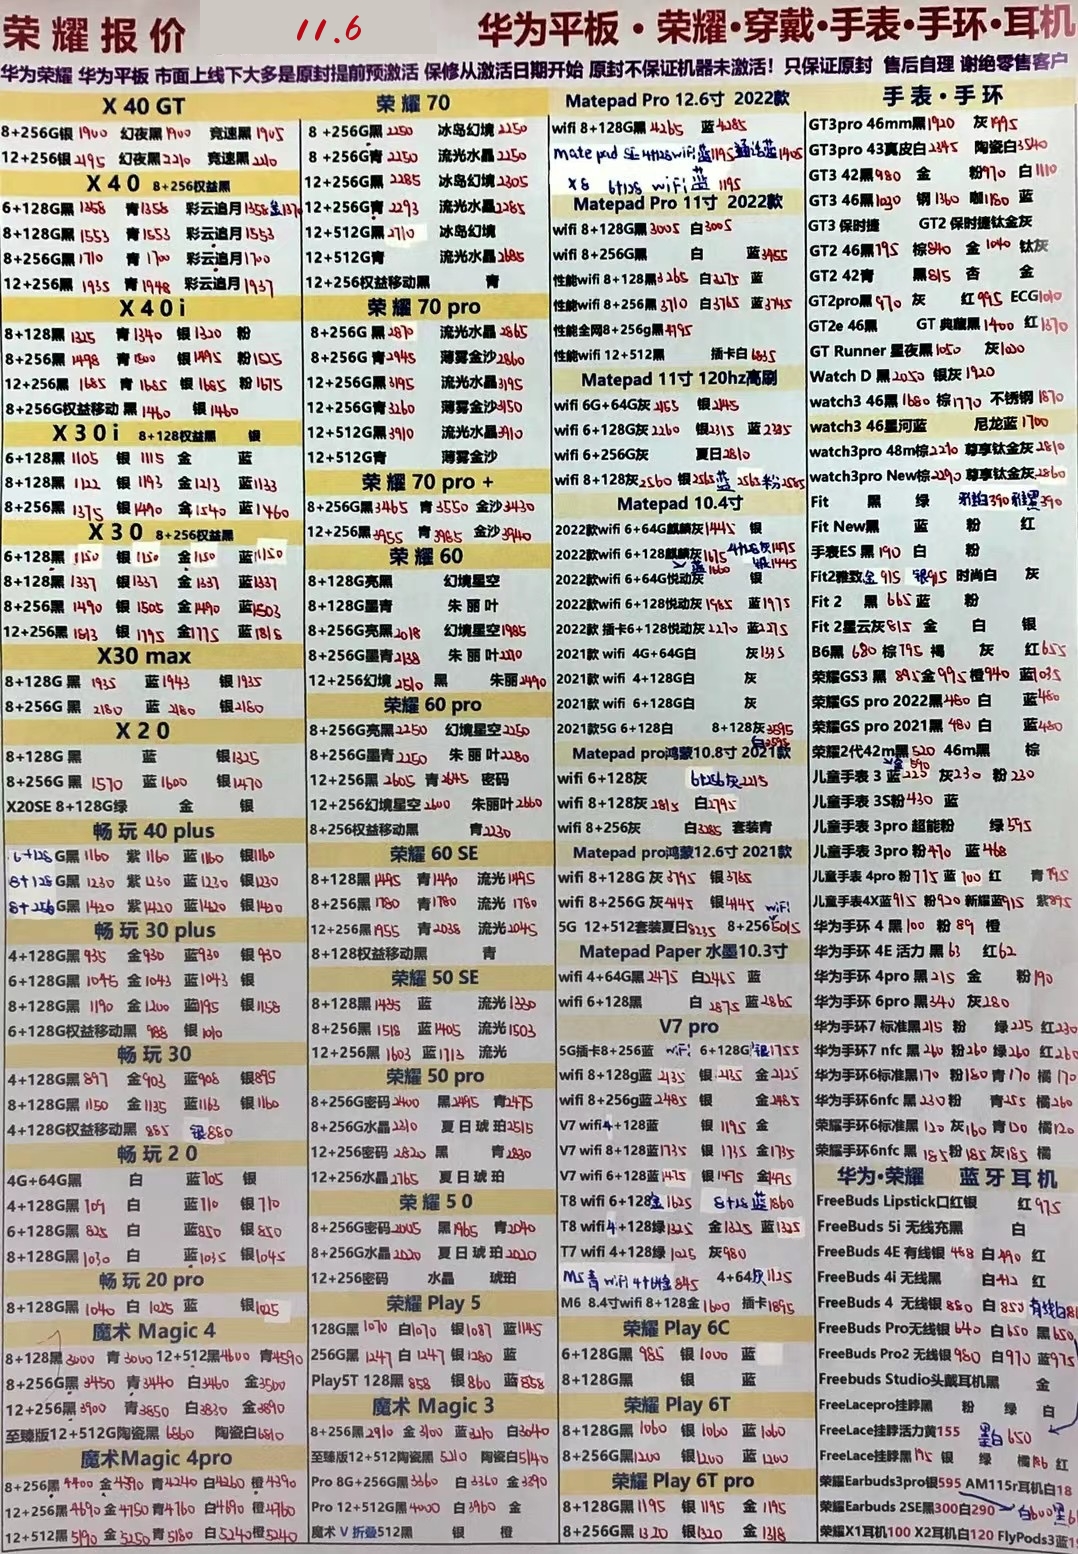 荣耀报价 11.6 华为平板·荣耀·穿戴·手表·手环·耳机
华为荣耀 华为平板 市面上线下大多是原封提前预激活 保修从激活日期开始 原封不保证机器未激活！只保证原封 售后自理 谢绝零售客户
X 40 GT
8+256G银 1900 幻夜黑 1900 竞速黑 1905
12+256银 2195 幻夜黑 2210 竞速黑 2210
X 40 8+256权益黑
6+128G黑 1358 青 1358 彩云追月 1358
8+128G黑 1553 青 1553 彩云追月 1553
8+256G黑 1710 青 1700 彩云追月 1700
12+256黑 1935 青 1948 彩云追月 1937
X 40 i
8+128黑 1325 青 1340 银 1320 粉
8+256黑 1498 青 1500 银 1495 粉 1525
12+256黑 1685 青 1685 银 1685 粉 1675
8+256G权益移动 黑 1460 银 1460
X 30 i 8+128权益黑 银
6+128黑 1105 银 1115 金 蓝
8+128黑 1122 银 1193 金 1213 蓝 1133
8+256黑 1375 银 1490 金 1540 蓝 1460
X 30 8+256权益黑
6+128黑 1150 银 1150 金 1150 蓝 1150
8+128黑 1337 银 1337 金 1337 蓝 1337
8+256黑 1490 银 1505 金 1490 蓝 1503
12+256黑 1813 银 1795 金 1775 蓝 1818
X30 max
8+128G 黑 1935 蓝 1943 银 1935
8+256G 黑 2180 蓝 2180 银 2180
X 2 0
8+128G 黑 蓝 银 1325
8+256G 黑 1570 蓝 1600 银 1470
X20SE 8+128G绿 金 银
畅玩 40 plus
6+128 G黑 1160 紫 1160 蓝 1160 银 1160
8+128 G黑 1230 紫 1230 蓝 1230 银 1230
8+256 G黑 1420 紫 1420 蓝 1420 银 1420
畅玩 30 plus
4+128G黑 935 金 930 蓝 930 银 930
6+128G黑 1045 金 1043 蓝 1043 银
8+128G黑 1190 金 1200 蓝 1195 银 1158
6+128G权益移动黑 988 银 1010
畅玩 30
4+128G黑 897 金 903 蓝 908 银 895
8+128G黑 1150 金 1135 蓝 1163 银 1160
4+128G权益移动黑 885 银 880
畅玩 2 0
4G+64G黑 白 蓝 705 银
4+128G黑 709 白 蓝 710 银 710
6+128G黑 825 白 蓝 850 银 850
8+128G黑 1030 白 蓝 1035 银 1045
畅玩 20 pro
8+128G黑 1040 白 1025 蓝 银 1025
魔术 Magic 4
8+128黑 3000 青 3000 12+512黑 4600 青 4590
8+256G黑 3450 青 3440 白 3460 金 3500
12+256黑 3900 青 3850 白 3830 金 3890
至臻版12+512G陶瓷黑 6860 陶瓷白 6810
魔术Magic 4pro
8+256黑 4400 金 4390 青 4240 白 4260 橙 4390
12+256黑 4690 金 4750 青 4760 白 4690 橙 4760
12+512黑 5190 金 5250 青 5180 白 5240 橙 5240
荣 耀 70
8 +256G黑 2250 冰岛幻境 2250
8 +256G青 2250 流光水晶 2250
12+256G黑 2285 冰岛幻境 2305
12+256G青 2293 流光水晶 2285
12+512G黑 2710 冰岛幻境
12+512G青 流光水晶 2685
12+256权益移动黑 青
荣 耀 70 pro
8+256G 黑 2870 流光水晶 2865
8+256G 青 2945 薄雾金沙 2860
12+256G黑 3195 流光水晶 3195
12+256G青 3260 薄雾金沙 3150
12+512G黑 3910 流光水晶 3910
12+512G青 薄雾金沙
荣 耀 70 pro +
8+256G黑 3465 青 3550 金沙 3430
12+256黑 3955 青 3985 金沙 3940
荣 耀 60
8+128G亮黑 幻境星空
8+128G墨青 朱 丽 叶
8+256G亮黑 2018 幻境星空 1985
8+256G墨青 2138 朱 丽 叶 2210
12+256幻境 2510 黑 朱丽 2490
荣耀 60 pro
8+256G亮黑 2250 幻境星空 2250
8+256G墨青 2250 朱 丽 叶 2280
12+256黑 2605 青 2645 密码
12+256幻境星空 2600 朱丽叶 2660
8+256权益移动黑 青 2230
荣耀 60 SE
8+128黑 1495 青 1490 流光 1495
8+256黑 1780 青 1780 流光 1780
12+256黑 1955 青 2038 流光 2045
8+128权益移动黑 青
荣耀 50 SE
8+128黑 1435 蓝 流光 1330
8+256黑 1518 蓝 1405 流光 1503
12+256黑 1603 蓝 1713 流光
荣耀 50 pro
8+256G密码 2400 黑 2495 青 2475
8+256G水晶 2310 夏 日 琥 珀 2515
12+256密码 2820 黑 青 2830
12+256水晶 2765 夏 日 琥 珀
荣 耀 5 0
8+256G密码 2005 黑 1965 青 2040
8+256G水晶 2020 夏 日 琥 珀 2020
12+256密码 水晶 琥珀
荣耀 Play 5
128G黑 1070 白 1070 银 1087 蓝 1145
256G黑 1247 白 1247 银 1280 蓝
Play5T 128黑 858 银 860 蓝 858
魔术 Magic 3
8+256黑 2910 金 3100 蓝 3210 白 3040
至臻版12+512陶瓷黑 5210 陶瓷白 5140
Pro 8G+256G黑 3360 白 3360 金 3390
Pro 12+512G黑 4000 白 3960 金
魔术 V 折叠512黑 银 橙
Matepad Pro 12.6寸 2022款
wifi 8+128G黑 4265 蓝 4285
mate pad SE 4+128wifi 蓝 1195 通话蓝 1405
X8 6+128 wiFi 蓝 1195
Matepad Pro 11寸 2022款
wifi 8+128G黑 3005 白 3005
wifi 8+256G黑 白 蓝 3455
性能wifi 8+128黑 3265 白 3275 蓝
性能wifi 8+256黑 3710 白 3765 蓝 3745
性能全网8+256g黑 4195
性能wifi 12+512黑 插卡白 6835
Matepad 11寸 120hz高刷
wifi 6G+64G灰 2165 银 2145
wifi 6+128G灰 2260 银 2315 蓝 2335
wifi 6+256G灰 夏日 2810
wifi 8+128灰 2560 银 2565 蓝 2565 粉 2565
Matepad 10.4寸
2022款wifi 6+64G麒麟灰 1445 银
2022款wifi 6+128麒麟灰 1675 4+128灰 1475
蓝 1660 银 1445
2022款wifi 6+64G悦动灰 银
2022款wifi 6+128悦动灰 1985 蓝 1975
2022款 插卡6+128悦动灰 2270 蓝 2275
2021款 wifi 4G+64G白 灰 1335
2021款 wifi 4+128G白 灰
2021款 wifi 6+128G白 灰
2021款5G 6+128白 8+128灰 3595
白 3595
Matepad pro鸿蒙10.8寸 2021款
wifi 6+128灰 6+256灰 2215
wifi 8+128灰 2815 白 2795
wifi 8+256灰 白 3285 套装青
Matepad pro鸿蒙12.6寸 2021款
wifi 8+128G 灰 3795 银 3785
wifi 8+256G 灰 4145 银 4145 wiFi
5G 12+512套装夏日 8235 8+256 5015
Matepad Paper 水墨10.3寸
wifi 4+64G黑 2475 白 2465 蓝
wifi 6+128黑 白 2875 蓝 2865
V7 pro
5G插卡8+256蓝 wiFi 6+128G 银 1755
wifi 8+128g蓝 2135 银 2135 金 2125
wifi 8+256g蓝 2485 银 金 2485
V7 wifi4+128蓝 银 1195 金
V7 wifi 8+128蓝 1735 银 1735 金 1735
V7 wifi 6+128蓝 1475 银 1475 金 1475
T8 wifi 6+128金 1625 8+128 蓝 1860
T8 wifi4+128绿 1325 金 1325 蓝 1325
T7 wifi 4+128绿 1025 灰 980
M5青 wiFi 4+64金 845 4+64灰 1125
M6 8.4寸wifi 8+128金 1600 插卡 1895
荣耀 Play 6C
6+128G黑 985 银 1000 蓝
8+128G黑 银 蓝
荣耀 Play 6T
8+128G黑 1060 银 1060 蓝 1060
8+256G黑 1200 银 1200 蓝 1200
荣耀 Play 6T pro
8+128G黑 1195 银 1195 金 1195
8+256G黑 1320 银 1320 金 1318
手 表 · 手 环
GT3pro 46mm黑 1920 灰 1995
GT3pro 43真皮白 2345 陶瓷白 3540
GT3 42黑 980 金 粉 970 白 1110
GT3 46黑 1030 钢 1360 咖 1180 蓝
GT3 保时捷 GT2 保时捷钛金灰
GT2 46黑 795 棕 840 金 1040 钛灰
GT2 42青 黑 815 杏 金
GT2pro黑 970 灰 红 995 ECG 1010
GT2e 46黑 GT 典藏黑 1400 红 1370
GT Runner 星夜黑 1050 灰 1020
Watch D 黑 2050 银灰 1920
watch3 46黑 1680 棕 1770 不锈钢 1870
watch3 46星河蓝 尼龙蓝 1700
watch3pro 48m棕 2270 尊享钛金灰 2810
watch3pro New棕 2290 尊享钛金灰 2860
Fit 黑 绿 雅白 390 雅黑 390
Fit New黑 蓝 粉 红
手表ES 黑 190 白 粉
Fit2雅致金 915 银 915 时尚白 灰
Fit 2 黑 665 蓝 粉
Fit 2星云灰 815 金 白 银
B6黑 680 棕 795 褐 灰 红 655
荣耀GS3 黑 895 金 995 橙 940 蓝 1035
荣耀GS pro 2022黑 480 白 蓝 480
荣耀GS pro 2021黑 480 白 蓝 480
荣耀2代42m黑 520 46m黑 棕
儿童手表 3 蓝 225 灰 230 粉 230
儿童手表 3S粉 430 蓝
儿童手表 3pro 超能粉 绿 595
儿童手表 3pro 粉 470 蓝 468
儿童手表 4pro 粉 775 蓝 700 红 青 795
儿童手表4X蓝 915 粉 920 新耀蓝 915 紫 895
华为手环 4 黑 100 粉 89 橙
华为手环 4E 活力 黑 63 红 62
华为手环 4pro 黑 215 金 粉 190
华为手环 6pro 黑 340 灰 280
华为手环7 标准黑 215 粉 绿 225 红 230
华为手环7 nfc 黑 260 粉 260 绿 260 红 260
华为手环6标准黑 170 粉 180 青 170 橘 170
华为手环6nfc 黑 230 粉 青 255 橘 260
荣耀手环6标准黑 120 灰 160 青 120 橘 120
荣耀手环6nfc 黑 185 粉 185 灰 185 橘
华为·荣耀 蓝牙耳机
FreeBuds Lipstick口红银 红 975
FreeBuds 5i 无线充黑 白
FreeBuds 4E 有线银 468 白 490 红
FreeBuds 4i 无线黑 白 412 红
FreeBuds 4 无线银 880 白 850 有线白
FreeBuds Pro无线银 640 白 650 黑 650
FreeBuds Pro2 无线银 980 白 970 蓝 975
Freebuds Studio头戴耳机黑 金
FreeLacepro挂脖黑 粉 绿 白
FreeLace挂脖活力黄155 黑白 650
FreeLace挂脖黑 195 银 绿 橘 186 红
荣耀Earbuds3pro银595 AM115r耳机白18
荣耀Earbuds 2SE黑300白290 白600
荣耀X1耳机100 X2耳机白120 FlyPods3蓝